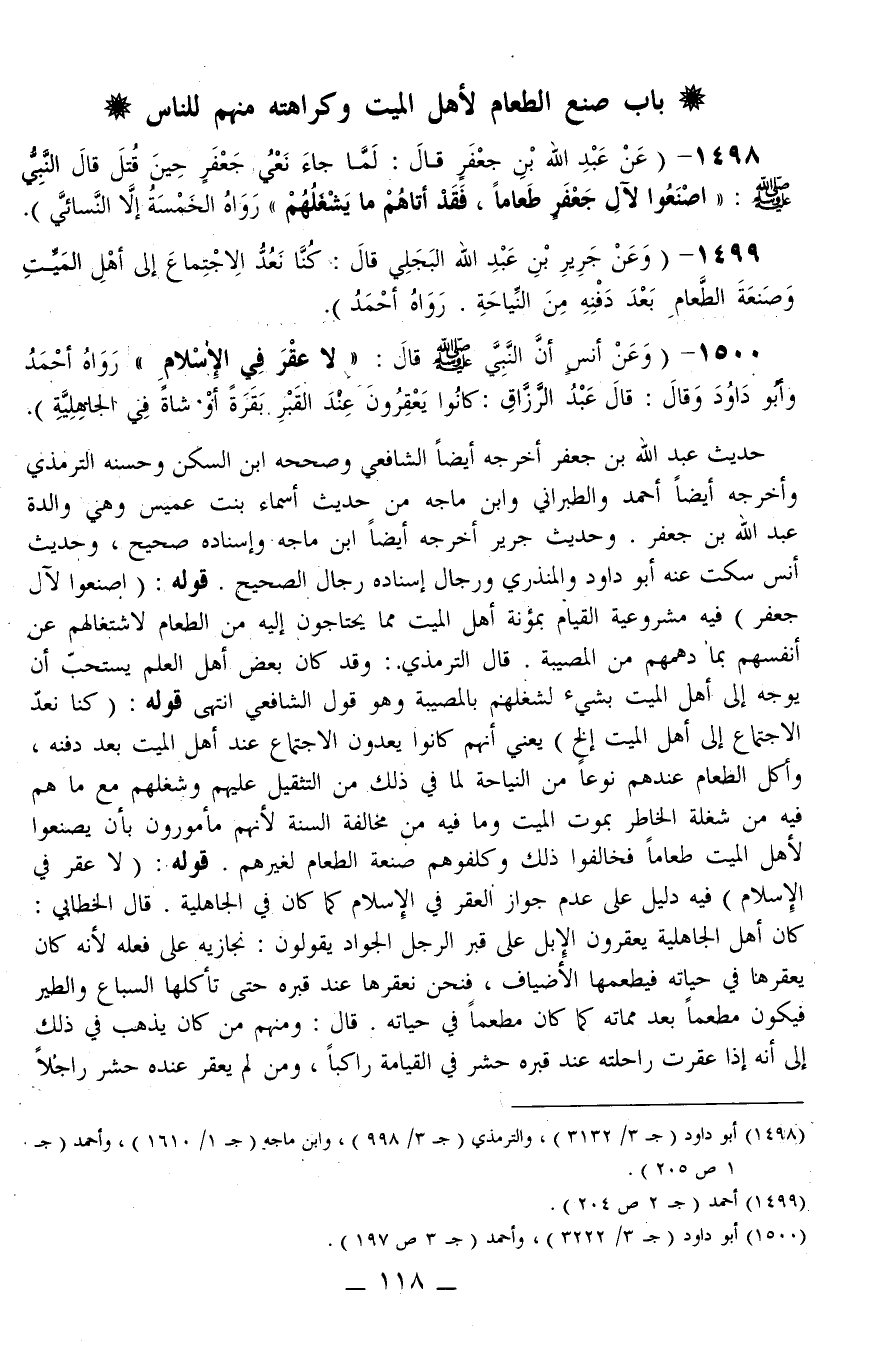 ❋ باب صنع الطعام لأهل الميت وكراهته منهم للناس ❋
١٤٩٨- ( عَنْ عَبْدِ الله بْنِ جَعْفَرٍ قالَ : لَمَّا جاءَ نَعْيُ جَعْفَرٍ حِينَ قُتلَ قالَ النَّبِيُّ
ﷺ : « اصْنَعُوا لآلِ جَعْفَرٍ طَعاماً ، فَقَدْ أتاهُمْ ما يَشْغَلُهُمْ » رَوَاهُ الخَمْسَةُ إلَّا النَّسائيَّ ).
١٤٩٩- ( وَعَنْ جَرِيرِ بْنِ عَبْدِ الله البَجَلِي قالَ : كُنَّا نَعُدُّ الِاجْتِماعَ إلى أهْلِ المَيِّتِ
وَصَنعَةَ الطَّعامِ بَعْدَ دَفْنِهِ مِنَ النِّياحَةِ . رَوَاهُ أحْمَدُ ).
١٥٠٠- ( وَعَنْ أنسٍ أنَّ النَّبِيَّ ﷺ قالَ : « لا عقْرَ فِي الإسْلامِ » رَوَاهُ أحْمَدُ
وأبُو دَاوُدَ وَقالَ : قالَ عَبْدُ الرَّزَّاقِ : كانُوا يَعْقِرُونَ عِنْدَ القَبْرِ بَقَرَةً أوْ شاةً فِي الجاهِليَّةِ ).
حديث عبد الله بن جعفر أخرجه أيضاً الشافعي وصححه ابن السكن وحسنه الترمذي
وأخرجه أيضاً أحمد والطبراني وابن ماجه من حديث أسماء بنت عميس وهي والدة
عبد الله بن جعفر . وحديث جرير أخرجه أيضاً ابن ماجه وإسناده صحيح ، وحديث
أنس سكت عنه أبو داود والمنذري ورجال إسناده رجال الصحيح . قوله : ( اصنعوا لآل
جعفر ) فيه مشروعية القيام بمؤنة أهل الميت مما يحتاجون إليه من الطعام لاشتغالهم عن
أنفسهم بما دهمهم من المصيبة . قال الترمذي : وقد كان بعض أهل العلم يستحبّ أن
يوجه إلى أهل الميت بشيء لشغلهم بالمصيبة وهو قول الشافعي انتهى قوله : ( كنا نعدّ
الاجتماع إلى أهل الميت إلخ ) يعني أنهم كانوا يعدون الاجتماع عند أهل الميت بعد دفنه ،
وأكل الطعام عندهم نوعاً من النياحة لما في ذلك من التثقيل عليهم وشغلهم مع ما هم
فيه من شغلة الخاطر بموت الميت وما فيه من مخالفة السنة لأنهم مأمورون بأن يصنعوا
لأهل الميت طعاماً فخالفوا ذلك وكلفوهم صنعة الطعام لغيرهم . قوله : ( لا عقر في
الإسلام ) فيه دليل على عدم جواز العقر في الإسلام كما كان في الجاهلية . قال الخطابي :
كان أهل الجاهلية يعقرون الإبل على قبر الرجل الجواد يقولون : نجازيه على فعله لأنه كان
يعقرها في حياته فيطعمها الأضياف ، فنحن نعقرها عند قبره حتى تأكلها السباع والطير
فيكون مطعماً بعد مماته كما كان مطعماً في حياته . قال : ومنهم من كان يذهب في ذلك
إلى أنه إذا عقرت راحلته عند قبره حشر في القيامة راكباً ، ومن لم يعقر عنده حشر راجلاً
(١٤٩٨) أبو داود ( جـ ٣/ ٣١٣٢ ) ، والترمذي ( جـ ٣/ ٩٩٨ ) ، وابن ماجه ( جـ ١/ ١٦١٠ ) ، وأحمد ( جـ
١ ص ٢٠٥ ) .
(١٤٩٩) أحمد ( جـ ٢ ص ٢٠٤ ) .
(١٥٠٠) أبو داود ( جـ ٣/ ٣٢٢٢ ) ، وأحمد ( جـ ٣ ص ١٩٧ ) .
— ١١٨ —